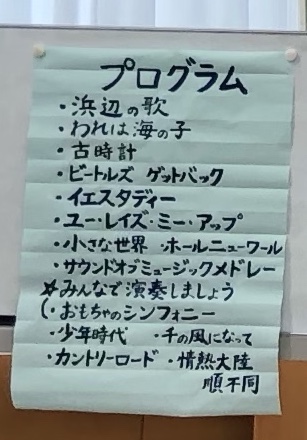 プログラム
・浜辺の歌
・われは海の子
・古時計
・ビートルズ ゲットバック
・イエスタディー
・ユー・レイズ・ミー・アップ
・小さな世界 ・ホールニューワール
・サウンドオブミュージックメドレー
☆みんなで演奏しましょう
(・おもちゃのシンフォニー
・少年時代 ・千の風になって
・カントリーロード ・情熱大陸
順不同